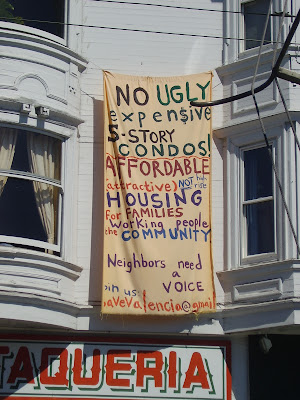 NO UGLY
expen$ive
5-STORY
CONDOS!
AFFORDABLE
(attractive) NOT high rise
HOUSING
FOR FAMILIES
Working people
the COMMUNITY
Neighbors need
a
VOICE
oin us:
aveValencia@gmai
TAQUERIA